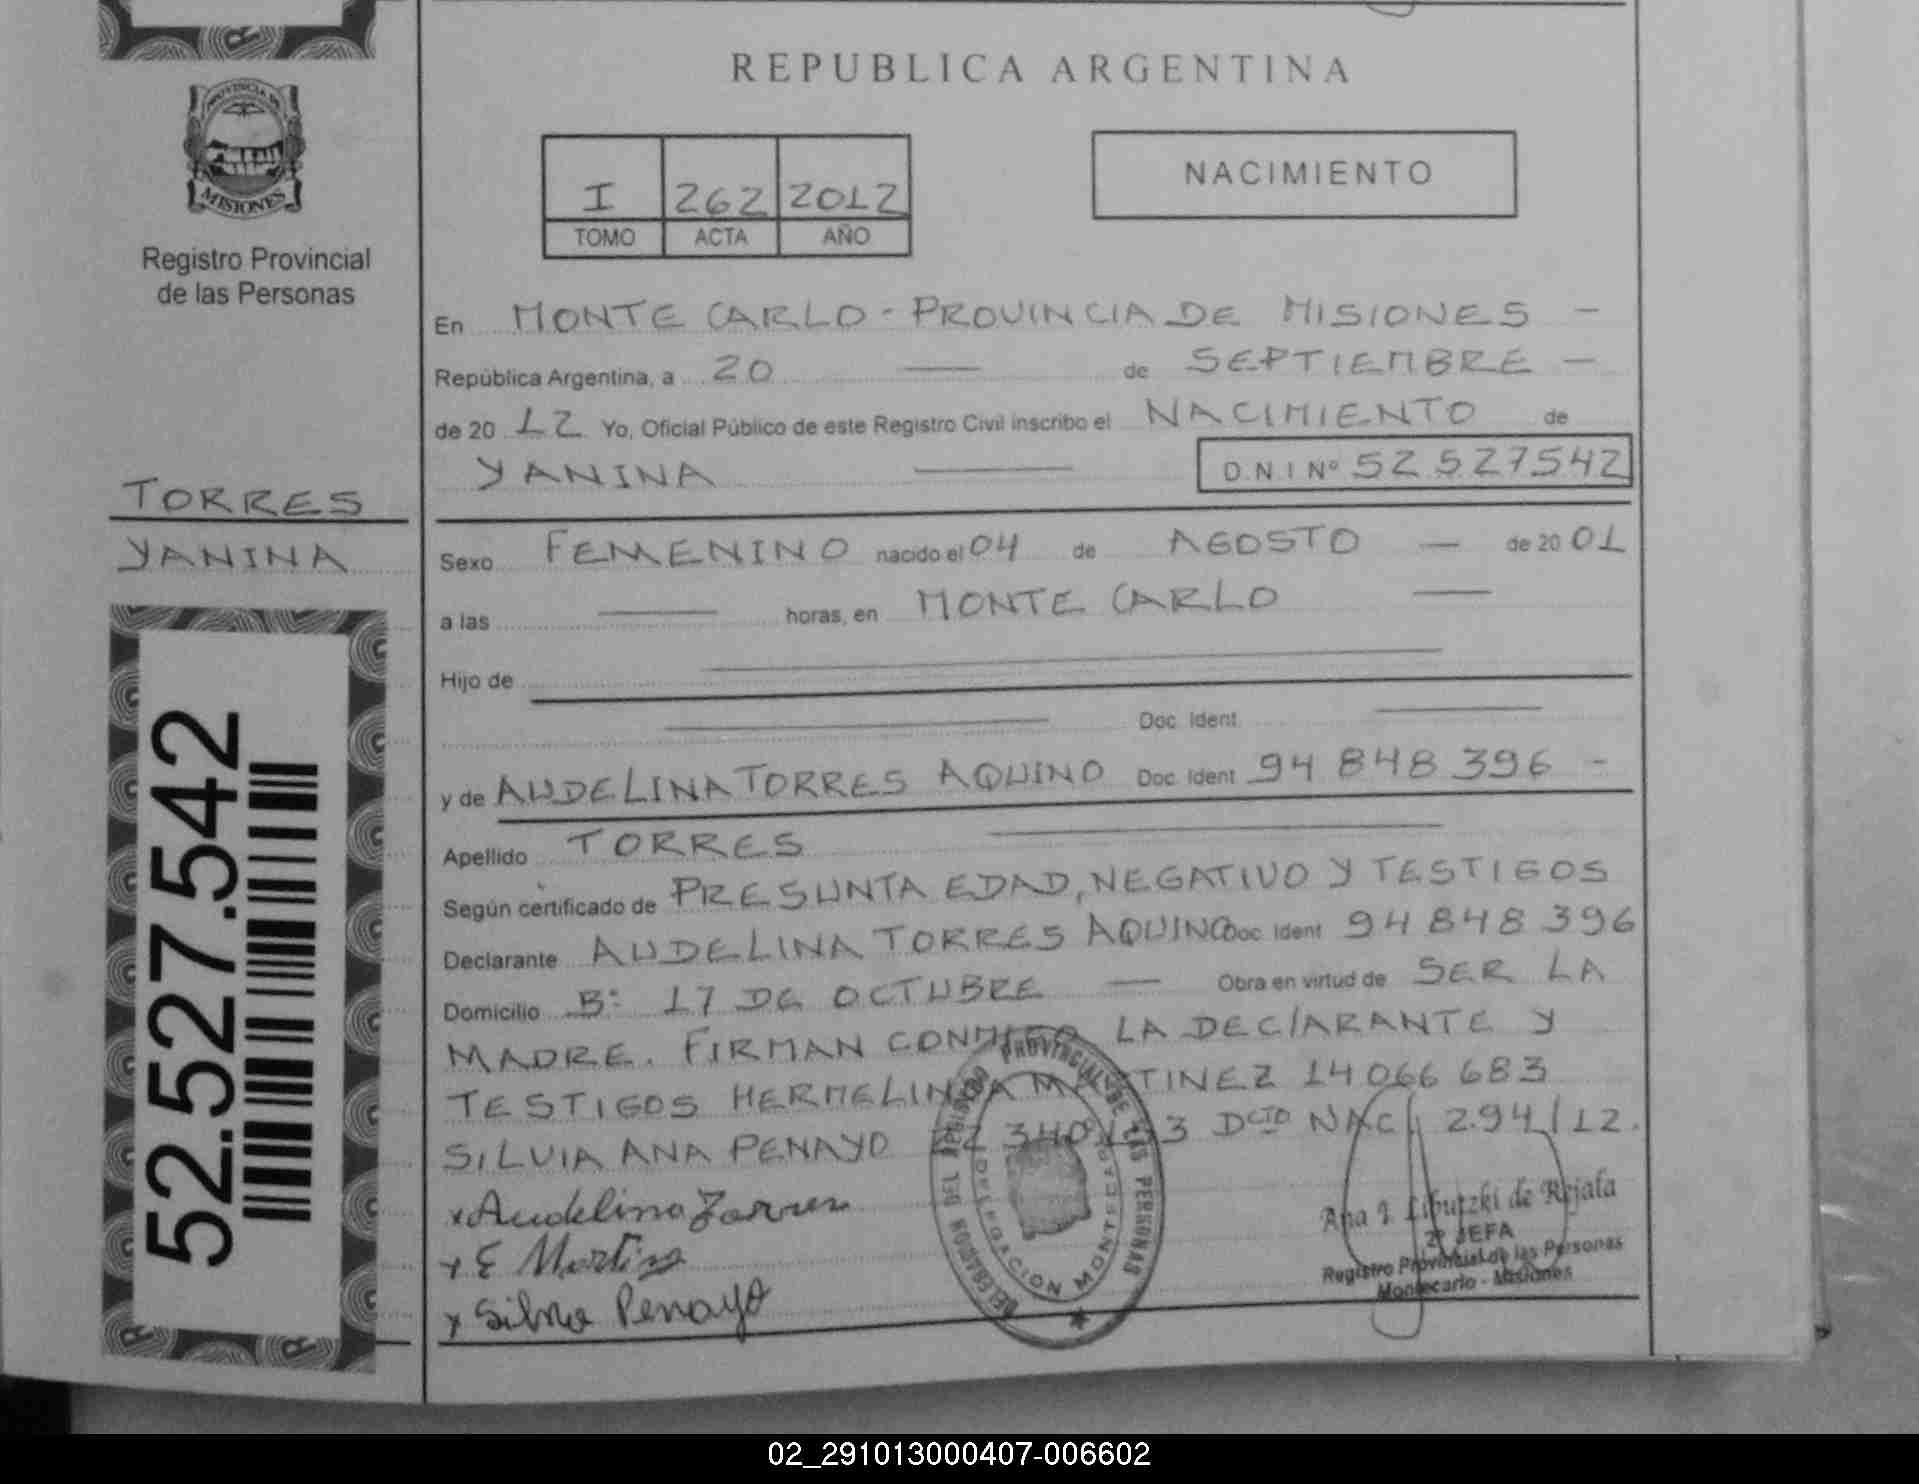 REPUBLICA ARGENTINA
PROVINCIA DE
MISIONES
Registro Provincial
de las Personas
I 262 2012
TOMO ACTA AÑO
NACIMIENTO
En MONTE CARLO - PROVINCIA DE MISIONES -
República Argentina, a 20 — de SEPTIEMBRE -
de 20 12 Yo, Oficial Público de este Registro Civil inscribo el NACIMIENTO de
YANINA — D.N.I Nº 52 527542
TORRES
YANINA
Sexo FEMENINO nacido el 04 de AGOSTO — de 20 01
a las — horas, en MONTE CARLO —
Hijo de —
— Doc. Ident. —
y de AUDELINA TORRES AQUINO Doc. Ident 94 848 396 -
Apellido TORRES —
Según certificado de PRESUNTA EDAD, NEGATIVO Y TESTIGOS
Declarante AUDELINA TORRES AQUINO Doc. Ident 94 848 396
Domicilio Bº 17 DE OCTUBRE — Obra en virtud de SER LA
MADRE. FIRMAN CONMIGO LA DECLARANTE Y
TESTIGOS HERMELINDA MARTINEZ 14 066 683
SILVIA ANA PENAYO DCTO NAC 294/12.
x Audelina Torres
x E Martinz
x Silvia Penayo
REGISTRO PROVINCIAL DE LAS PERSONAS
DELEGACION MONTECARLO
Ana I. de Rejala
2º JEFA
Registro Provincial de las Personas
Montecarlo - Misiones
52.527.542
02_291013000407-006602